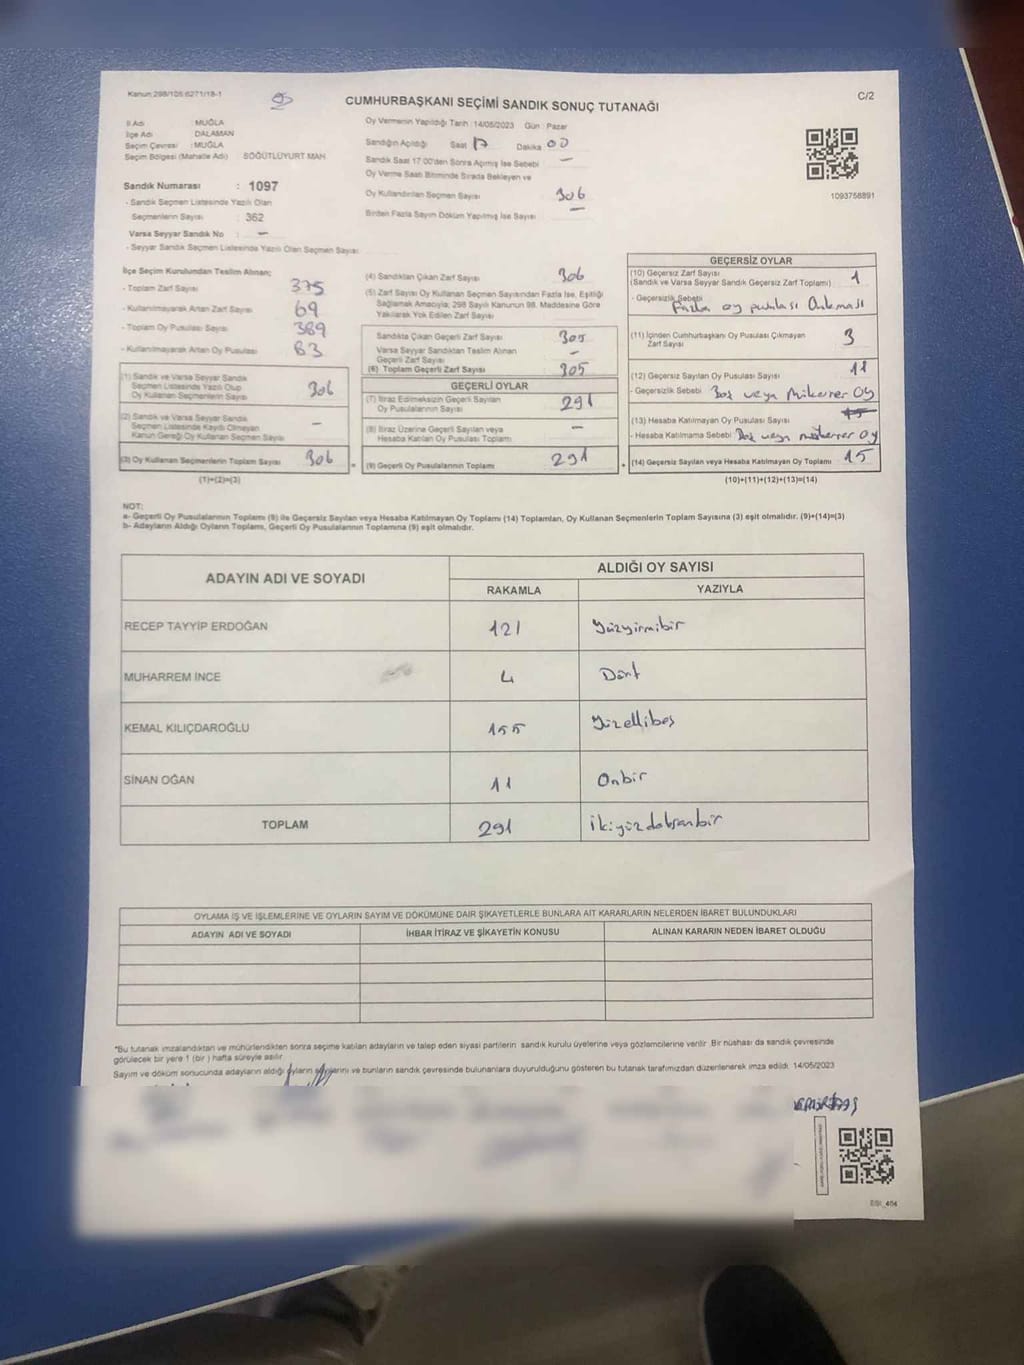 Kanun:298/105:6271/18-1
CUMHURBAŞKANI SEÇİMİ SANDIK SONUÇ TUTANAĞI
C/2
İl Adı : MUĞLA
İlçe Adı : DALAMAN
Seçim Çevresi : MUĞLA
Seçim Bölgesi (Mahalle Adı) SÖĞÜTLÜYURT MAH
Sandık Numarası : 1097
- Sandık Seçmen Listesinde Yazılı Olan
Seçmenlerin Sayısı : 362
Varsa Seyyar Sandık No : –
- Seyyar Sandık Seçmen Listesinde Yazılı Olan Seçmen Sayısı:
Oy Vermenin Yapıldığı Tarih : 14/05/2023 Gün : Pazar
Sandığın Açıldığı Saat 17 Dakika 00
Sandık Saat 17:00'den Sonra Açılmış İse Sebebi –
Oy Verme Saati Bitiminde Sırada Bekleyen ve
Oy Kullandırılan Seçmen Sayısı 306
Birden Fazla Sayım Döküm Yapılmış İse Sayısı –
1093758891
İlçe Seçim Kurulundan Teslim Alınan;
- Toplam Zarf Sayısı 375
- Kullanılmayarak Artan Zarf Sayısı 69
- Toplam Oy Pusulası Sayısı 389
- Kullanılmayarak Artan Oy Pusulası 83
(1) Sandık ve Varsa Seyyar Sandık
Seçmen Listesinde Yazılı Olup
Oy Kullanan Seçmenlerin Sayısı 306
(2) Sandık ve Varsa Seyyar Sandık
Seçmen Listesinde Kayıtlı Olmayan
Kanun Gereği Oy Kullanan Seçmen Sayısı –
(3) Oy Kullanan Seçmenlerin Toplam Sayısı 306
(1)+(2)=(3)
(4) Sandıktan Çıkan Zarf Sayısı 306
(5) Zarf Sayısı Oy Kullanan Seçmen Sayısından Fazla İse, Eşitliği
Sağlamak Amacıyla; 298 Sayılı Kanunun 98. Maddesine Göre
Yakılarak Yok Edilen Zarf Sayısı
Sandıkta Çıkan Geçerli Zarf Sayısı 305
Varsa Seyyar Sandıktan Teslim Alınan
Geçerli Zarf Sayısı –
(6) Toplam Geçerli Zarf Sayısı 305
GEÇERLİ OYLAR
(7) İtiraz Edilmeksizin Geçerli Sayılan
Oy Pusulalarının Sayısı 291
(8) İtiraz Üzerine Geçerli Sayılan veya
Hesaba Katılan Oy Pusulası Toplamı –
= (9) Geçerli Oy Pusulalarının Toplamı 291 +
GEÇERSİZ OYLAR
(10) Geçersiz Zarf Sayısı
(Sandık ve Varsa Seyyar Sandık Geçersiz Zarf Toplamı) 1
- Geçersizlik Sebebi Fazla oy pusulası Çıkması
(11) İçinden Cumhurbaşkanı Oy Pusulası Çıkmayan
Zarf Sayısı 3
(12) Geçersiz Sayılan Oy Pusulası Sayısı 11
- Geçersizlik Sebebi Boş veya Mükerrer Oy
(13) Hesaba Katılmayan Oy Pusulası Sayısı 15
- Hesaba Katılmama Sebebi Boş veya mükerrer oy
(14) Geçersiz Sayılan veya Hesaba Katılmayan Oy Toplamı 15
(10)+(11)+(12)+(13)=(14)
NOT:
a- Geçerli Oy Pusulalarının Toplamı (9) ile Geçersiz Sayılan veya Hesaba Katılmayan Oy Toplamı (14) Toplamları, Oy Kullanan Seçmenlerin Toplam Sayısına (3) eşit olmalıdır. (9)+(14)=(3)
b- Adayların Aldığı Oyların Toplamı, Geçerli Oy Pusulalarının Toplamına (9) eşit olmalıdır.
ADAYIN ADI VE SOYADI ALDIĞI OY SAYISI
RAKAMLA YAZIYLA
RECEP TAYYİP ERDOĞAN 121 Yüzyirmibir
MUHARREM İNCE 4 Dört
KEMAL KILIÇDAROĞLU 155 Yüzellibeş
SİNAN OĞAN 11 Onbir
TOPLAM 291 İkiyüzdoksanbir
OYLAMA İŞ VE İŞLEMLERİNE VE OYLARIN SAYIM VE DÖKÜMÜNE DAİR ŞİKAYETLERLE BUNLARA AİT KARARLARIN NELERDEN İBARET BULUNDUKLARI
ADAYIN ADI VE SOYADI İHBAR İTİRAZ VE ŞİKAYETİN KONUSU ALINAN KARARIN NEDEN İBARET OLDUĞU
*Bu tutanak imzalandıktan ve mühürlendikten sonra seçime katılan adayların ve talep eden siyasi partilerin sandık kurulu üyelerine veya gözlemcilerine verilir. Bir nüshası da sandık çevresinde
görülecek bir yere 1 (bir) hafta süreyle asılır
Sayım ve döküm sonucunda adayların aldığı oyların sayılarını ve bunların sandık çevresinde bulunanlara duyurulduğunu gösteren bu tutanak tarafımızdan düzenlenerek imza edildi. 14/05/2023